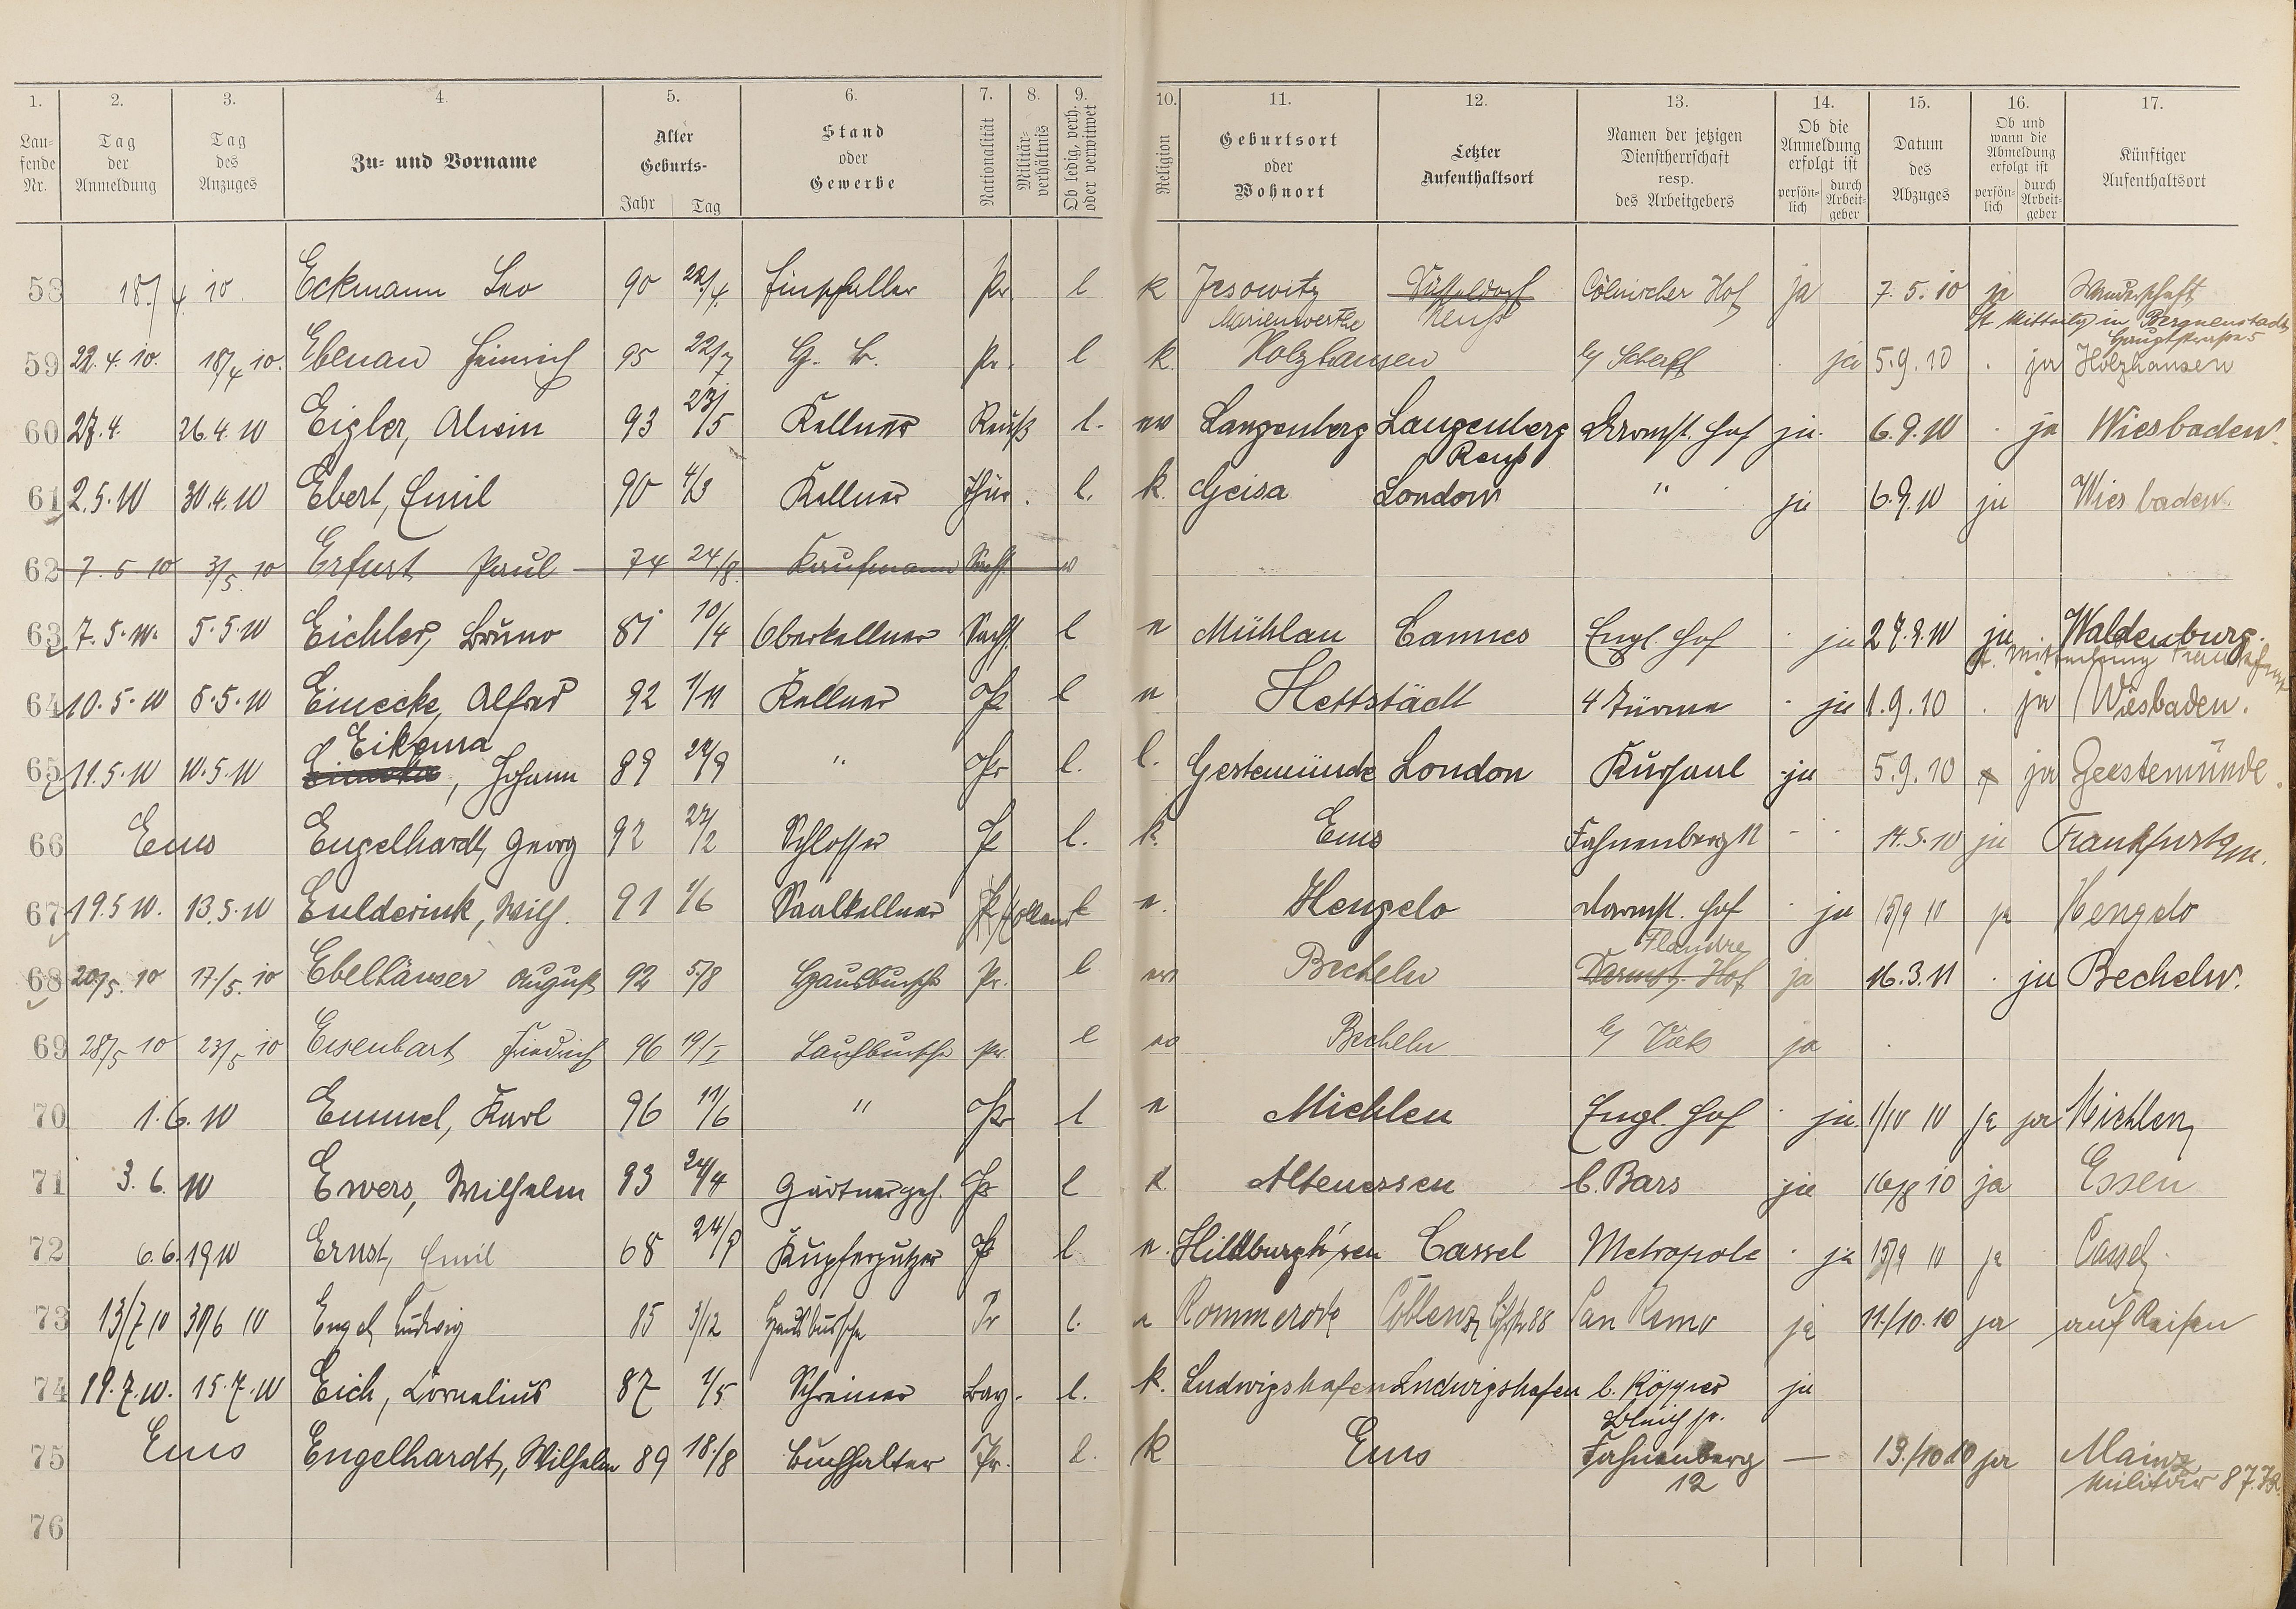 1. 2. 3. 4. 5. 6. 7. 8. 9. 10. 11. 12. 13. 14. 15. 16. 17.
Lau-
fende
Nr.
Tag
der
Anmeldung
Tag
des
Anzuges
Zu- und Vorname
Alter
Geburts-
Jahr Tag
Stand
oder
Gewerbe
Nationalität
Militär-
verhältnis
Ob ledig, verh.
oder verwitwet
Religion
Geburtsort
oder
Wohnort
Letzter
Aufenthaltsort
Namen der jetzigen
Dienstherrschaft
resp.
des Arbeitgebers
Ob die
Anmeldung
erfolgt ist
persön-
lich
durch
Arbeit-
geber
Datum
des
Abzuges
Ob und
wann die
Abmeldung
erfolgt ist
persön-
lich
durch
Arbeit-
geber
Künftiger
Aufenthaltsort
58 18./4. 10. Eckmann Leo 90 22./4. Pr. l k Jesowitz Marienwerther Düsseldorf Neuss Cölnischer Hof ja 7. 5. 10 ja Wanderschaft
59 22. 4. 10. 18/4 10. Ebenau Heinrich 95 22/7 Pr. l k. Holzhausen ja 5. 9. 10 ja Holzhausen
60 27. 4. 26. 4. 10 Eigler, Alwin 93 23/5 Kellner Reuß l. ev Langenberg Langenberg Reuß Darmst. Hof ja. 6. 9. 10 ja Wiesbaden.
61 2. 5. 10 30. 4. 10 Ebert, Emil 90 4/3 Kellner Thür. l. k. Geisa London " ja 6. 9. 10 ja Wiesbaden.
62 7. 5 10 3/5. 10 Erfurt Paul 74 24/8. Kaufmann Sachs.
63 7. 5. 10. 5. 5. 10 Eichler, Bruno 81 10/4 Oberkellner Sachs. l Mühlau Cannes Engl. Hof ja 27. 9. 10 ja Waldenburg.
64 10. 5. 10 8. 5. 10 Einecke, Alfred 92 1/11 Kellner Pr. l Hettstädt 4 Türme ja 1. 9. 10 ja Wiesbaden.
65 11. 5. 10 10. 5. 10 Eikema, Johann 89 " Pr l. l. Gestemünde London Kursaal ja 5. 9. 10 ja Geestemünde.
66 Ems Engelhardt, Georg 92 Schlosser Pr l. k. Ems Fahnenberg 11 14. 5. 10 ja Frankfurt a/m.
67 19. 5 10. 13. 5. 10 Eulderink, Wilh. 91 1/6 Saalkellner Holland l Hengelo Darmst. Hof ja 15/9 10 ja Hengelo
68 20/5. 10 17/5. 10 Ebelhäuser August 92 5/8 Hausbursche Pr. l ev Becheln Flandre Darmst. Hof ja 16. 3. 11 ja Becheln.
69 28/5 10 23/5 10 Eisenbart Friedrich 96 19/I Laufbursche pr. l Becheln ja
70 1. 6. 10 Emmel, Karl 96 11/6 " Pr l Miehlen Engl. Hof ja. 1/10 10 ja ja Miehlen
71 3. 6. 10 Ewers, Wilhelm 93 24/4 Gärtnergeh. Pr l k. Altenessen b. Bars ja 16/8 10 ja Essen
72 6. 6. 1910 Ernst, Emil 68 Kupferputzer Pr l Hildburgh'sen Cassel Metropole ja 15/9 10 ja Cassel.
73 13/7 10 30/6 10 Engel Ludwig 85 3/12 Hausbursche Pr l. Rommerode Coblenz San Remo ja 11./10. 10 ja auf Reisen
74 19. 7. 10. 15. 7. 10 Eich, Cornelius 87 1/5 Schreiner Bay. l. k. Ludwigshafen Ludwigshafen ja
75 Ems Engelhardt, Wilhelm 89 18./8 Buchhalter Pr. l. k Ems Fahnenberg 12 — 19./10 10 ja Mainz Militär 87.
76